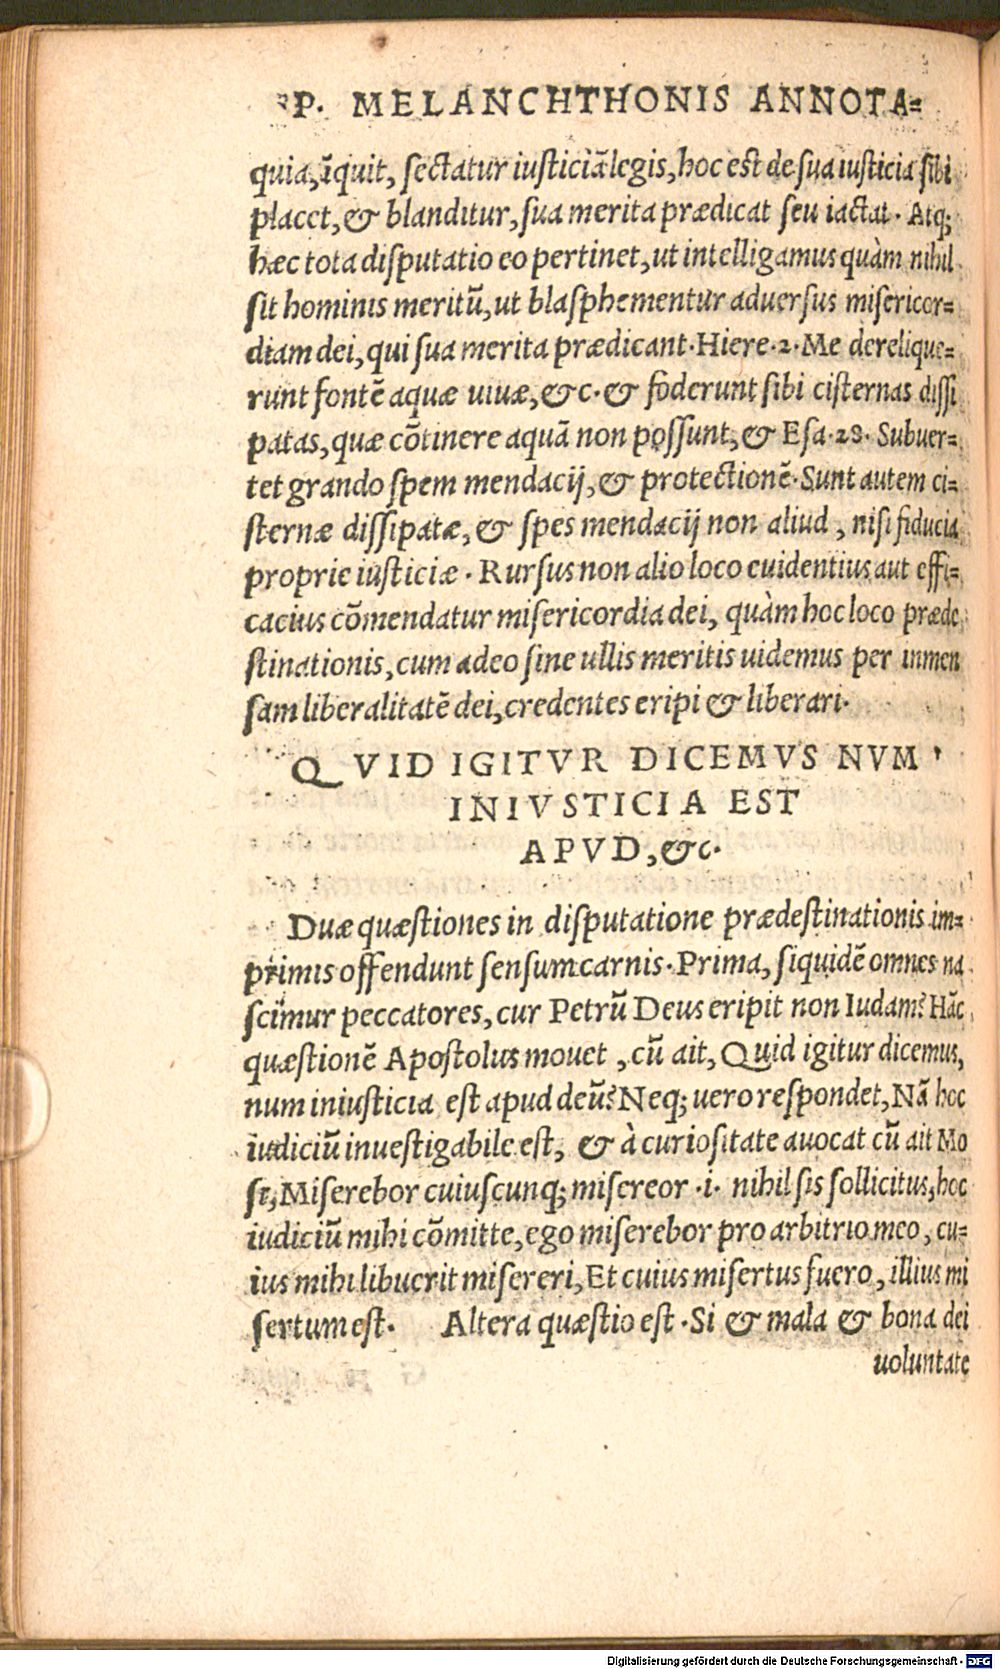 P. MELANCHTHONIS ANNOTA=
quia, īquit, sectatur iusticiā legis, hoc est de sua iusticia sibi
placet, & blanditur, sua merita prædicat seu iactat. Atq;
hæc tota disputatio eo pertinet, ut intelligamus quàm nihil
sit hominis meritū, ut blasphementur aduersus misericor=
diam dei, qui sua merita prædicant. Hiere. 2. Me derelique=
runt fontē aquæ uiuæ, &c. & foderunt sibi cisternas dissi
patas, quæ cōtinere aquā non possunt, & Esa. 28. Subuer=
tet grando spem mendacij, & protectionē. Sunt autem ci=
sternæ dissipatæ, & spes mendacij non aliud, nisi fiducia
proprie iusticiæ. Rursus non alio loco euidentius aut effi=
cacius cōmendatur misericordia dei, quàm hoc loco præde
stinationis, cum adeo sine ullis meritis uidemus per inmen
sam liberalitatē dei, credentes eripi & liberari.
QVID IGITVR DICEMVS NVM
INIVSTICIA EST
APVD, &c.
Duæ quæstiones in disputatione prædestinationis im=
primis offendunt sensum carnis. Prima, siquidē omnes na
scimur peccatores, cur Petrū Deus eripit non Iudam? Hāc
quæstionē Apostolus mouet, cū ait, Quid igitur dicemus,
num iniusticia est apud deū? Neq; uero respondet, Nā hoc
iudiciū inuestigabile est, & à curiositate auocat cū ait Mo
si, Miserebor cuiuscunq; misereor .i. nihil sis sollicitus, hoc
iudiciū mihi cōmitte, ego miserebor pro arbitrio meo, cu=
ius mihi libuerit misereri, Et cuius misertus fuero, illius mi
sertum est. Altera quæstio est. Si & mala & bona dei
uoluntate
Digitalisierung gefördert durch die Deutsche Forschungsgemeinschaft - DFG